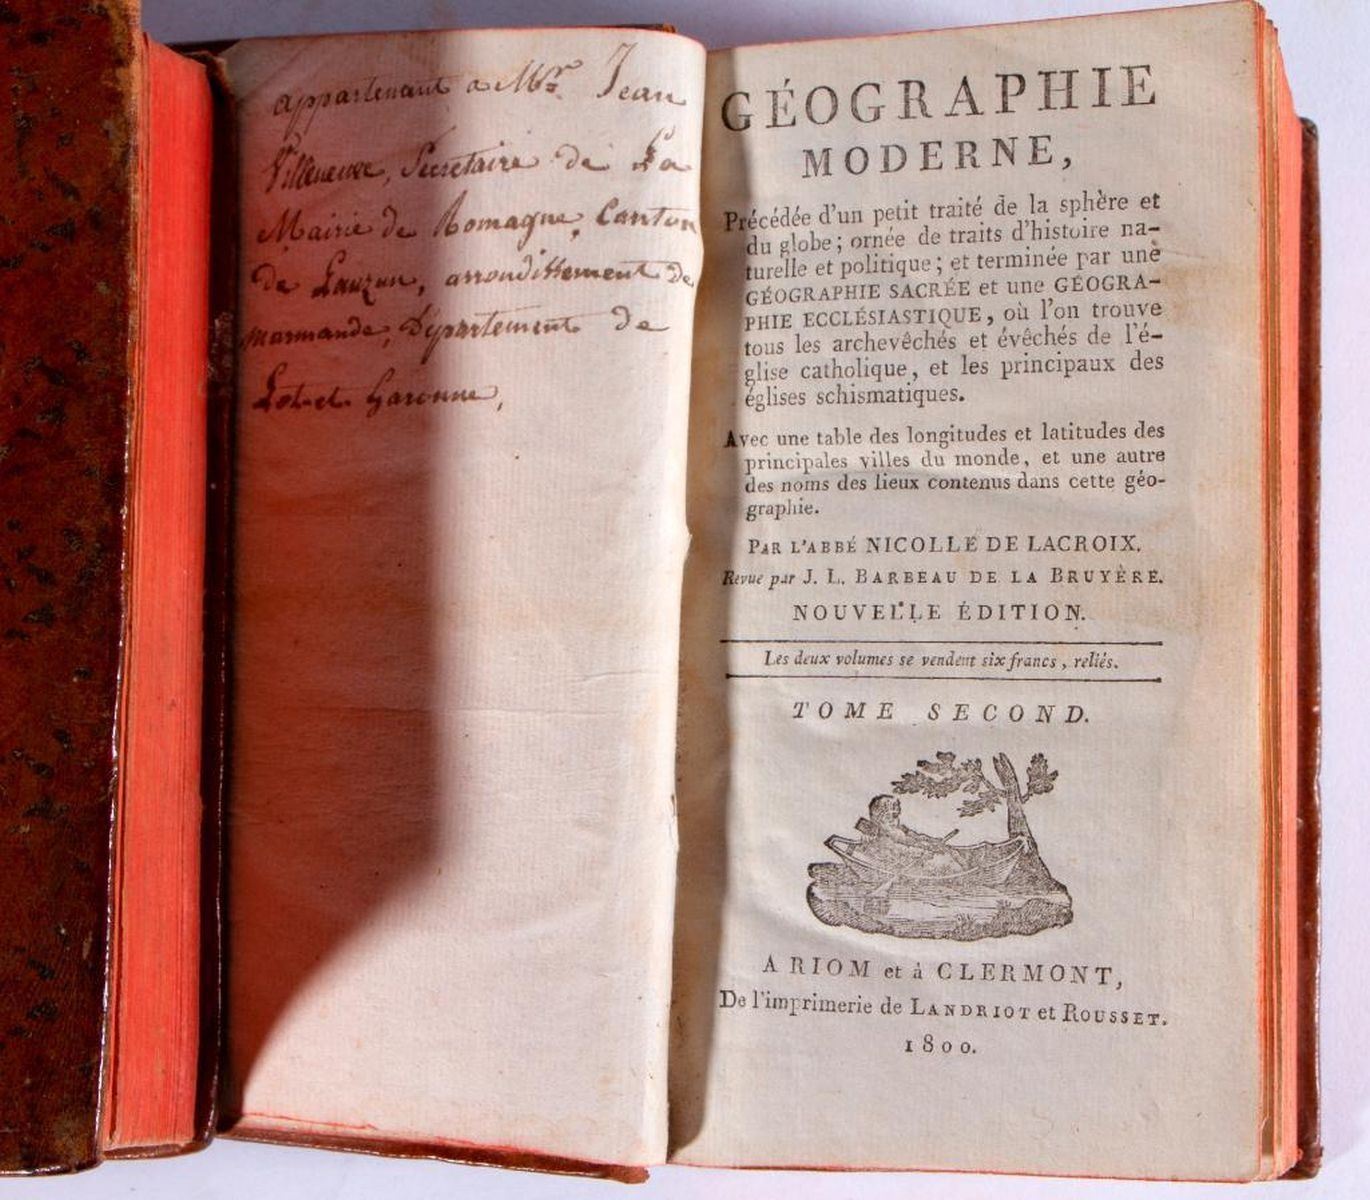 appartenant a Mr. Jean
Villeneuve, Secretaire de La
Mairie de Romagne, Canton
de Lauzun, arrondissement de
marmande, Département de
Lot-et-Garonne,
GÉOGRAPHIE
MODERNE,
Précédée d'un petit traité de la sphère et
du globe ; ornée de traits d'histoire na-
turelle et politique ; et terminée par une
GÉOGRAPHIE SACRÉE et une GÉOGRA-
PHIE ECCLÉSIASTIQUE, où l'on trouve
tous les archevêchés et évêchés de l'é-
glise catholique, et les principaux des
églises schismatiques.
Avec une table des longitudes et latitudes des
principales villes du monde, et une autre
des noms des lieux contenus dans cette géo-
graphie.
PAR L'ABBÉ NICOLLE DE LACROIX.
Revue par J. L. BARBEAU DE LA BRUYÈRE.
NOUVELLE ÉDITION.
Les deux volumes se vendent six francs, reliés.
TOME SECOND.
A RIOM et à CLERMONT,
De l'imprimerie de LANDRIOT et ROUSSET.
1800.